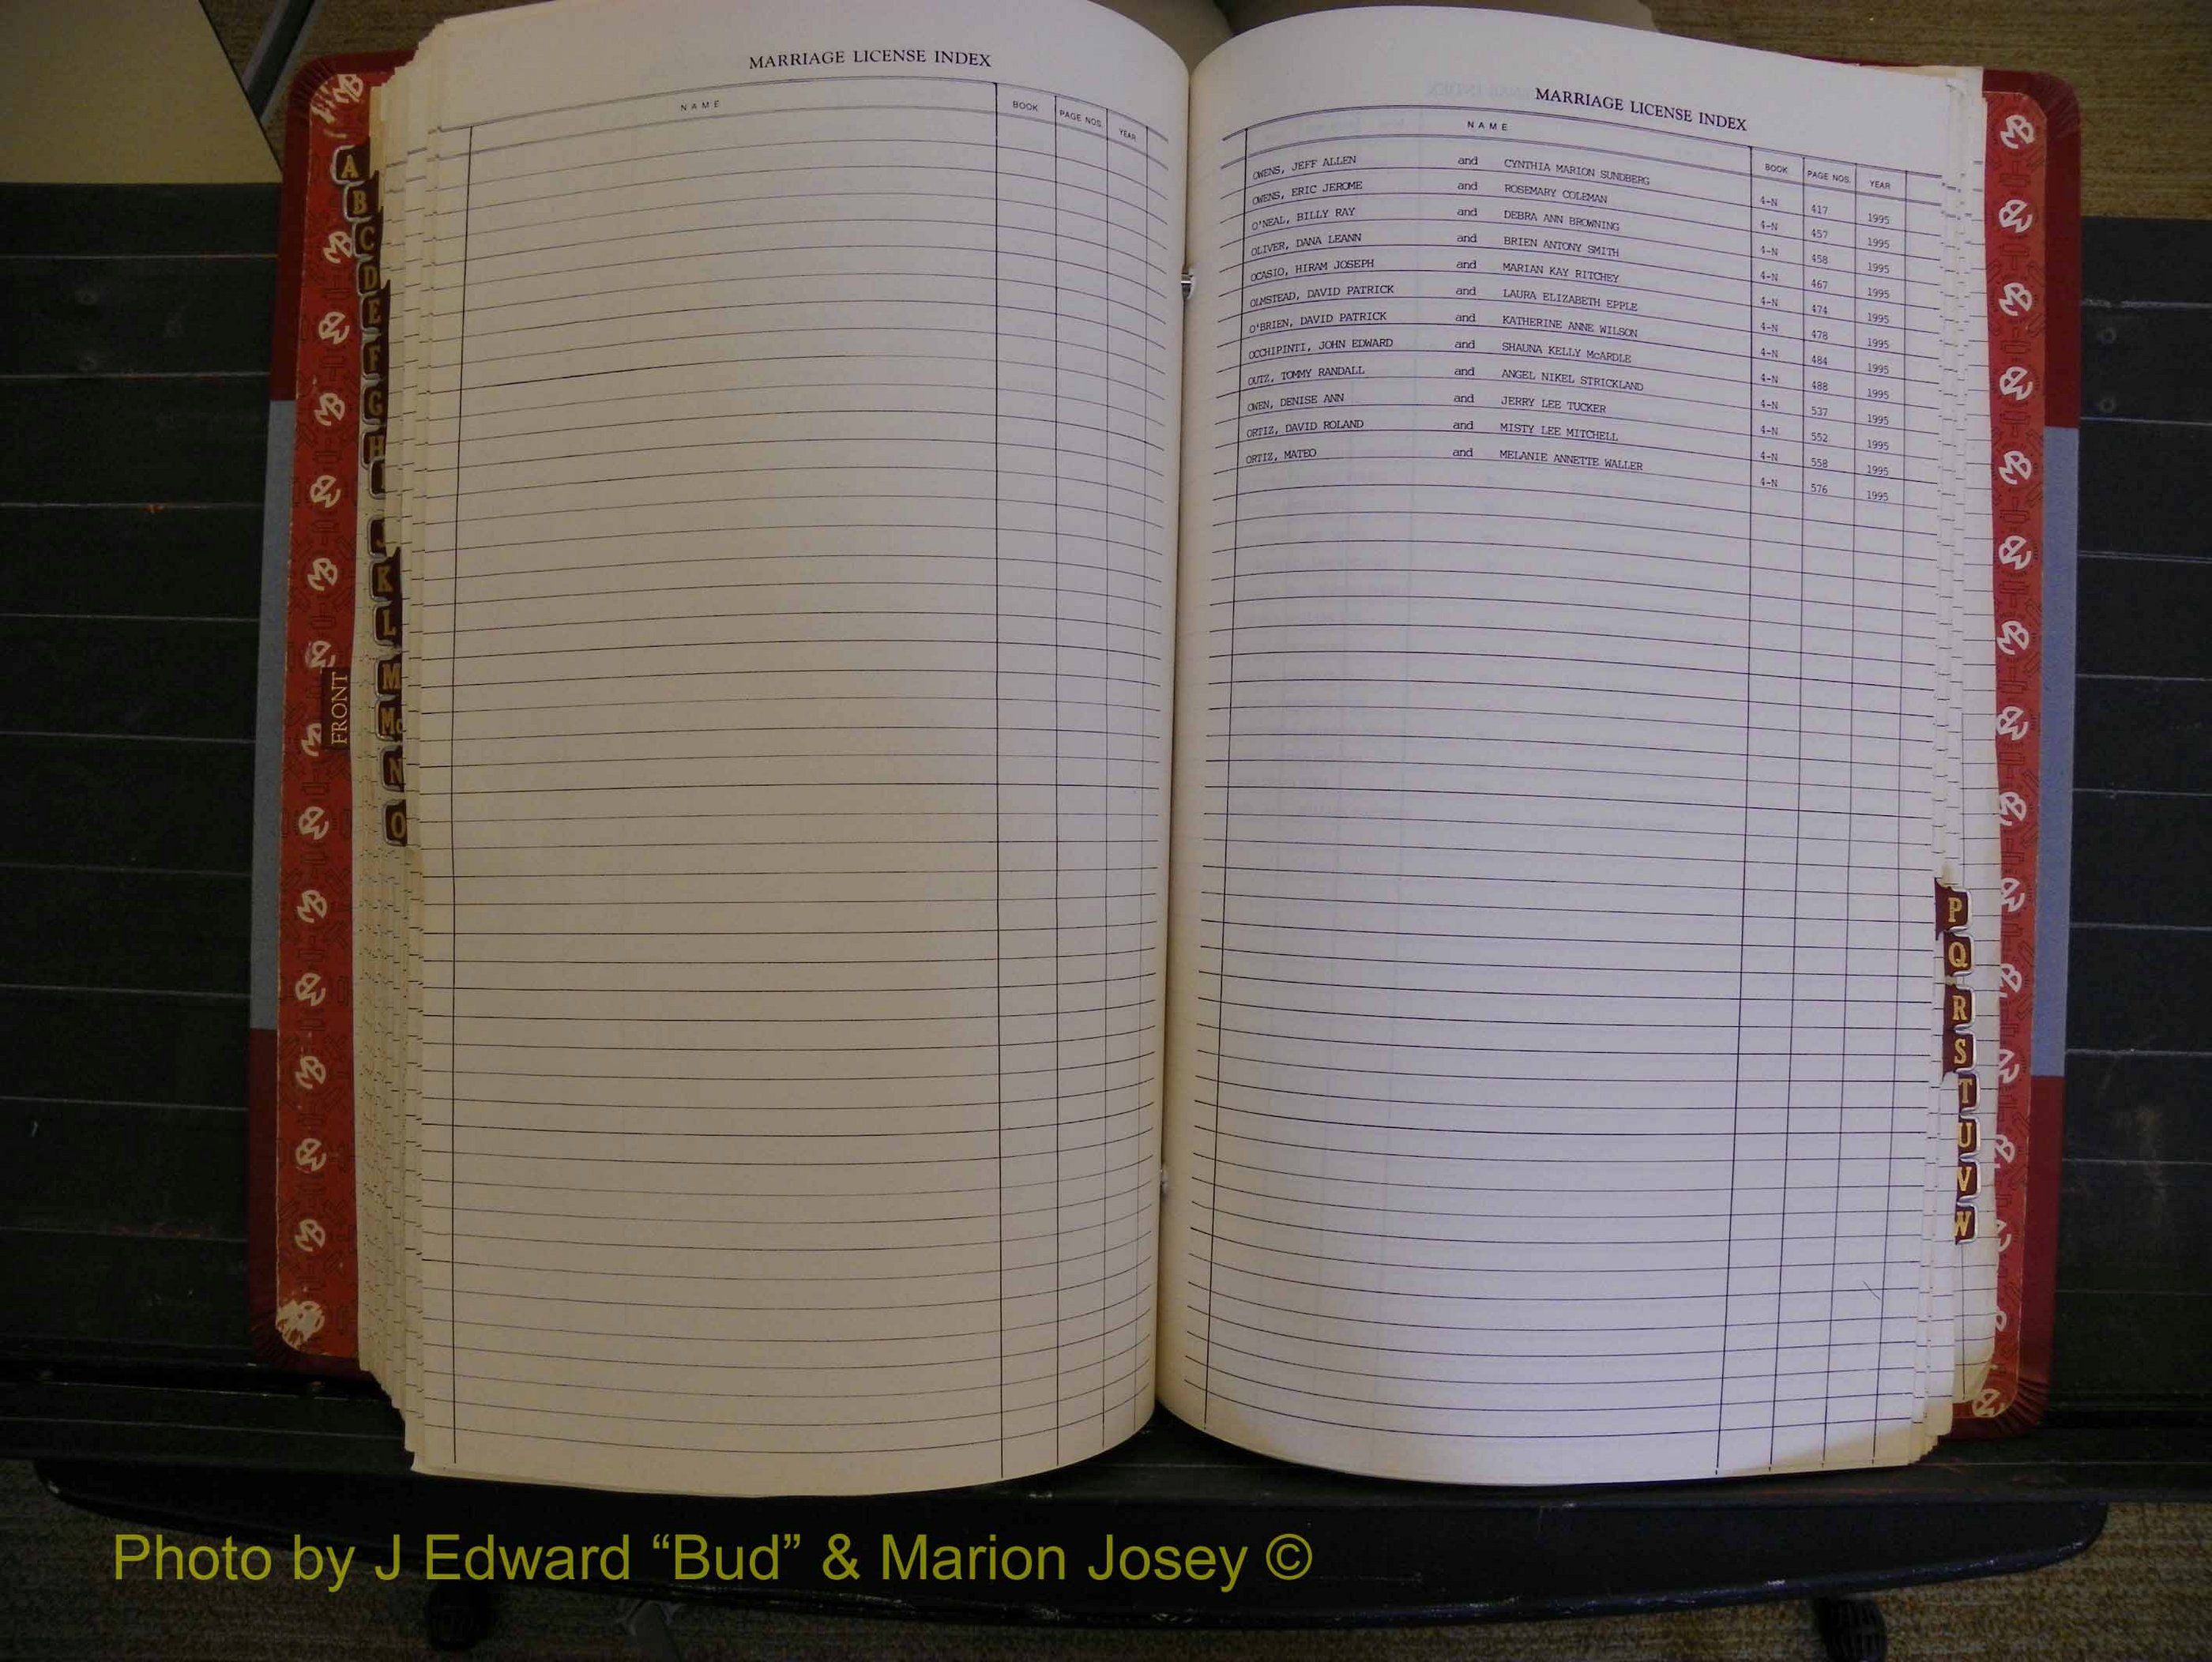 MARRIAGE LICENSE INDEX
NAME BOOK PAGE NOS. YEAR
A
B
C
D
E
F
G
H
I
J
K
L
M
Mc
N
O
FRONT
MARRIAGE LICENSE INDEX
NAME BOOK PAGE NOS. YEAR
OWENS, JEFF ALLEN and CYNTHIA MARION SUNDBERG 4-N 417 1995
OWENS, ERIC JEROME and ROSEMARY COLEMAN 4-N 457 1995
O'NEAL, BILLY RAY and DEBRA ANN BROWNING 4-N 458 1995
OLIVER, DANA LEANN and BRIEN ANTONY SMITH 4-N 467 1995
OCASIO, HIRAM JOSEPH and MARIAN KAY RITCHEY 4-N 474 1995
OLMSTEAD, DAVID PATRICK and LAURA ELIZABETH EPPLE 4-N 478 1995
O'BRIEN, DAVID PATRICK and KATHERINE ANNE WILSON 4-N 484 1995
OCCHIPINTI, JOHN EDWARD and SHAUNA KELLY McARDLE 4-N 488 1995
OUTZ, TOMMY RANDALL and ANGEL NIKEL STRICKLAND 4-N 537 1995
OWEN, DENISE ANN and JERRY LEE TUCKER 4-N 552 1995
ORTIZ, DAVID ROLAND and MISTY LEE MITCHELL 4-N 558 1995
ORTIZ, MATEO and MELANIE ANNETTE WALLER 4-N 576 1995
P
Q
R
S
T
U
V
W
Photo by J Edward “Bud” & Marion Josey ©